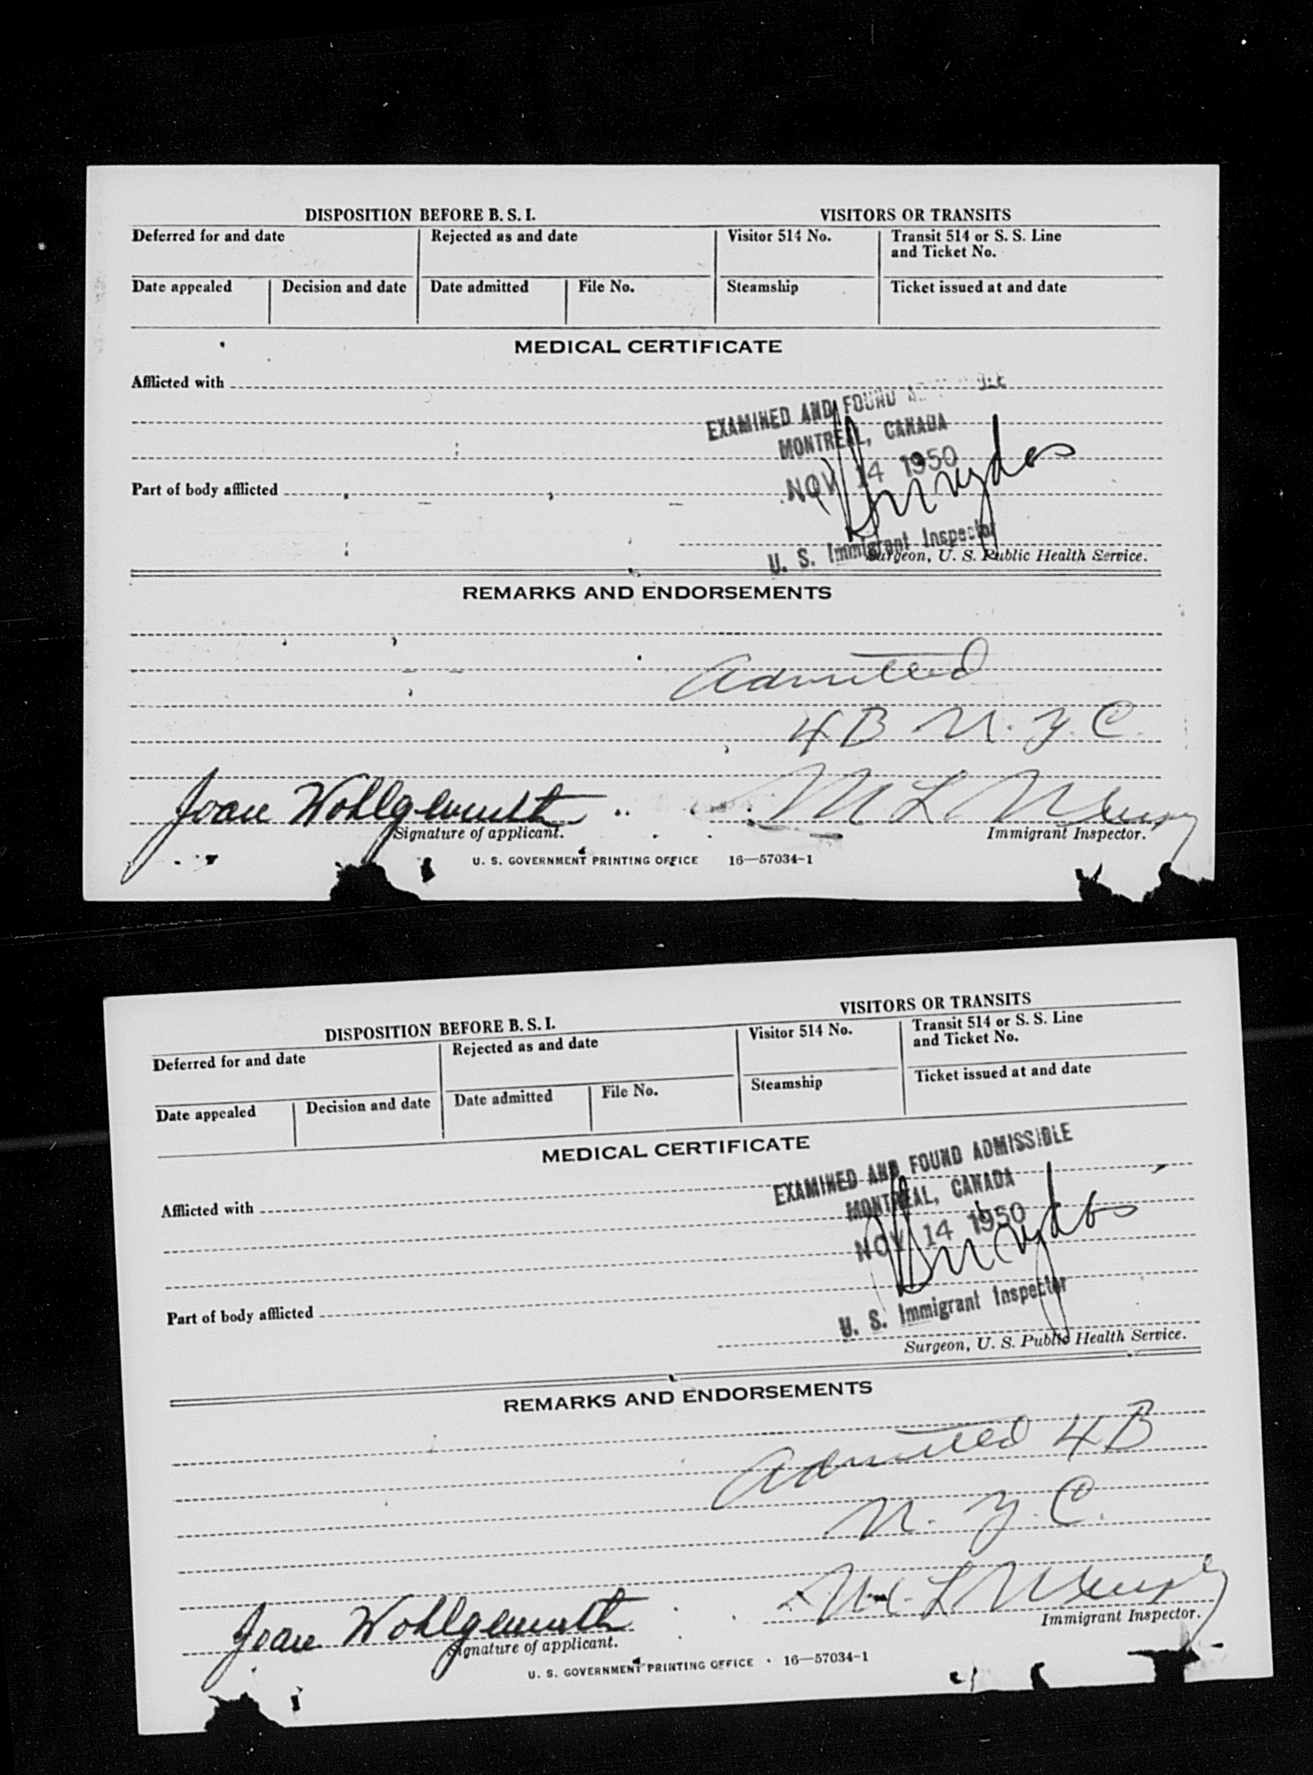 DISPOSITION BEFORE B. S. I. VISITORS OR TRANSITS
Deferred for and date Rejected as and date Visitor 514 No. Transit 514 or S. S. Line
and Ticket No.
Date appealed Decision and date Date admitted File No. Steamship Ticket issued at and date
MEDICAL CERTIFICATE
Afflicted with
EXAMINED AND FOUND
MONTREAL, CANADA
NOV 14 1950
Part of body afflicted
U. S. Immigrant Inspector
Surgeon, U. S. Public Health Service.
REMARKS AND ENDORSEMENTS
Admitted
4B N.Y.C.
Joan Wohlgemuth M L
Signature of applicant. Immigrant Inspector.
U. S. GOVERNMENT PRINTING OFFICE 16—57034-1
DISPOSITION BEFORE B. S. I. VISITORS OR TRANSITS
Deferred for and date Rejected as and date Visitor 514 No. Transit 514 or S. S. Line
and Ticket No.
Date appealed Decision and date Date admitted File No. Steamship Ticket issued at and date
MEDICAL CERTIFICATE
EXAMINED AND FOUND ADMISSIBLE
Afflicted with
MONTREAL, CANADA
NOV 14 1950
Part of body afflicted
U. S. Immigrant Inspector
Surgeon, U. S. Public Health Service.
REMARKS AND ENDORSEMENTS
Admitted 4B
N.Y.C.
Joan Wohlgemuth M L
Signature of applicant. Immigrant Inspector.
U. S. GOVERNMENT PRINTING OFFICE 16—57034-1